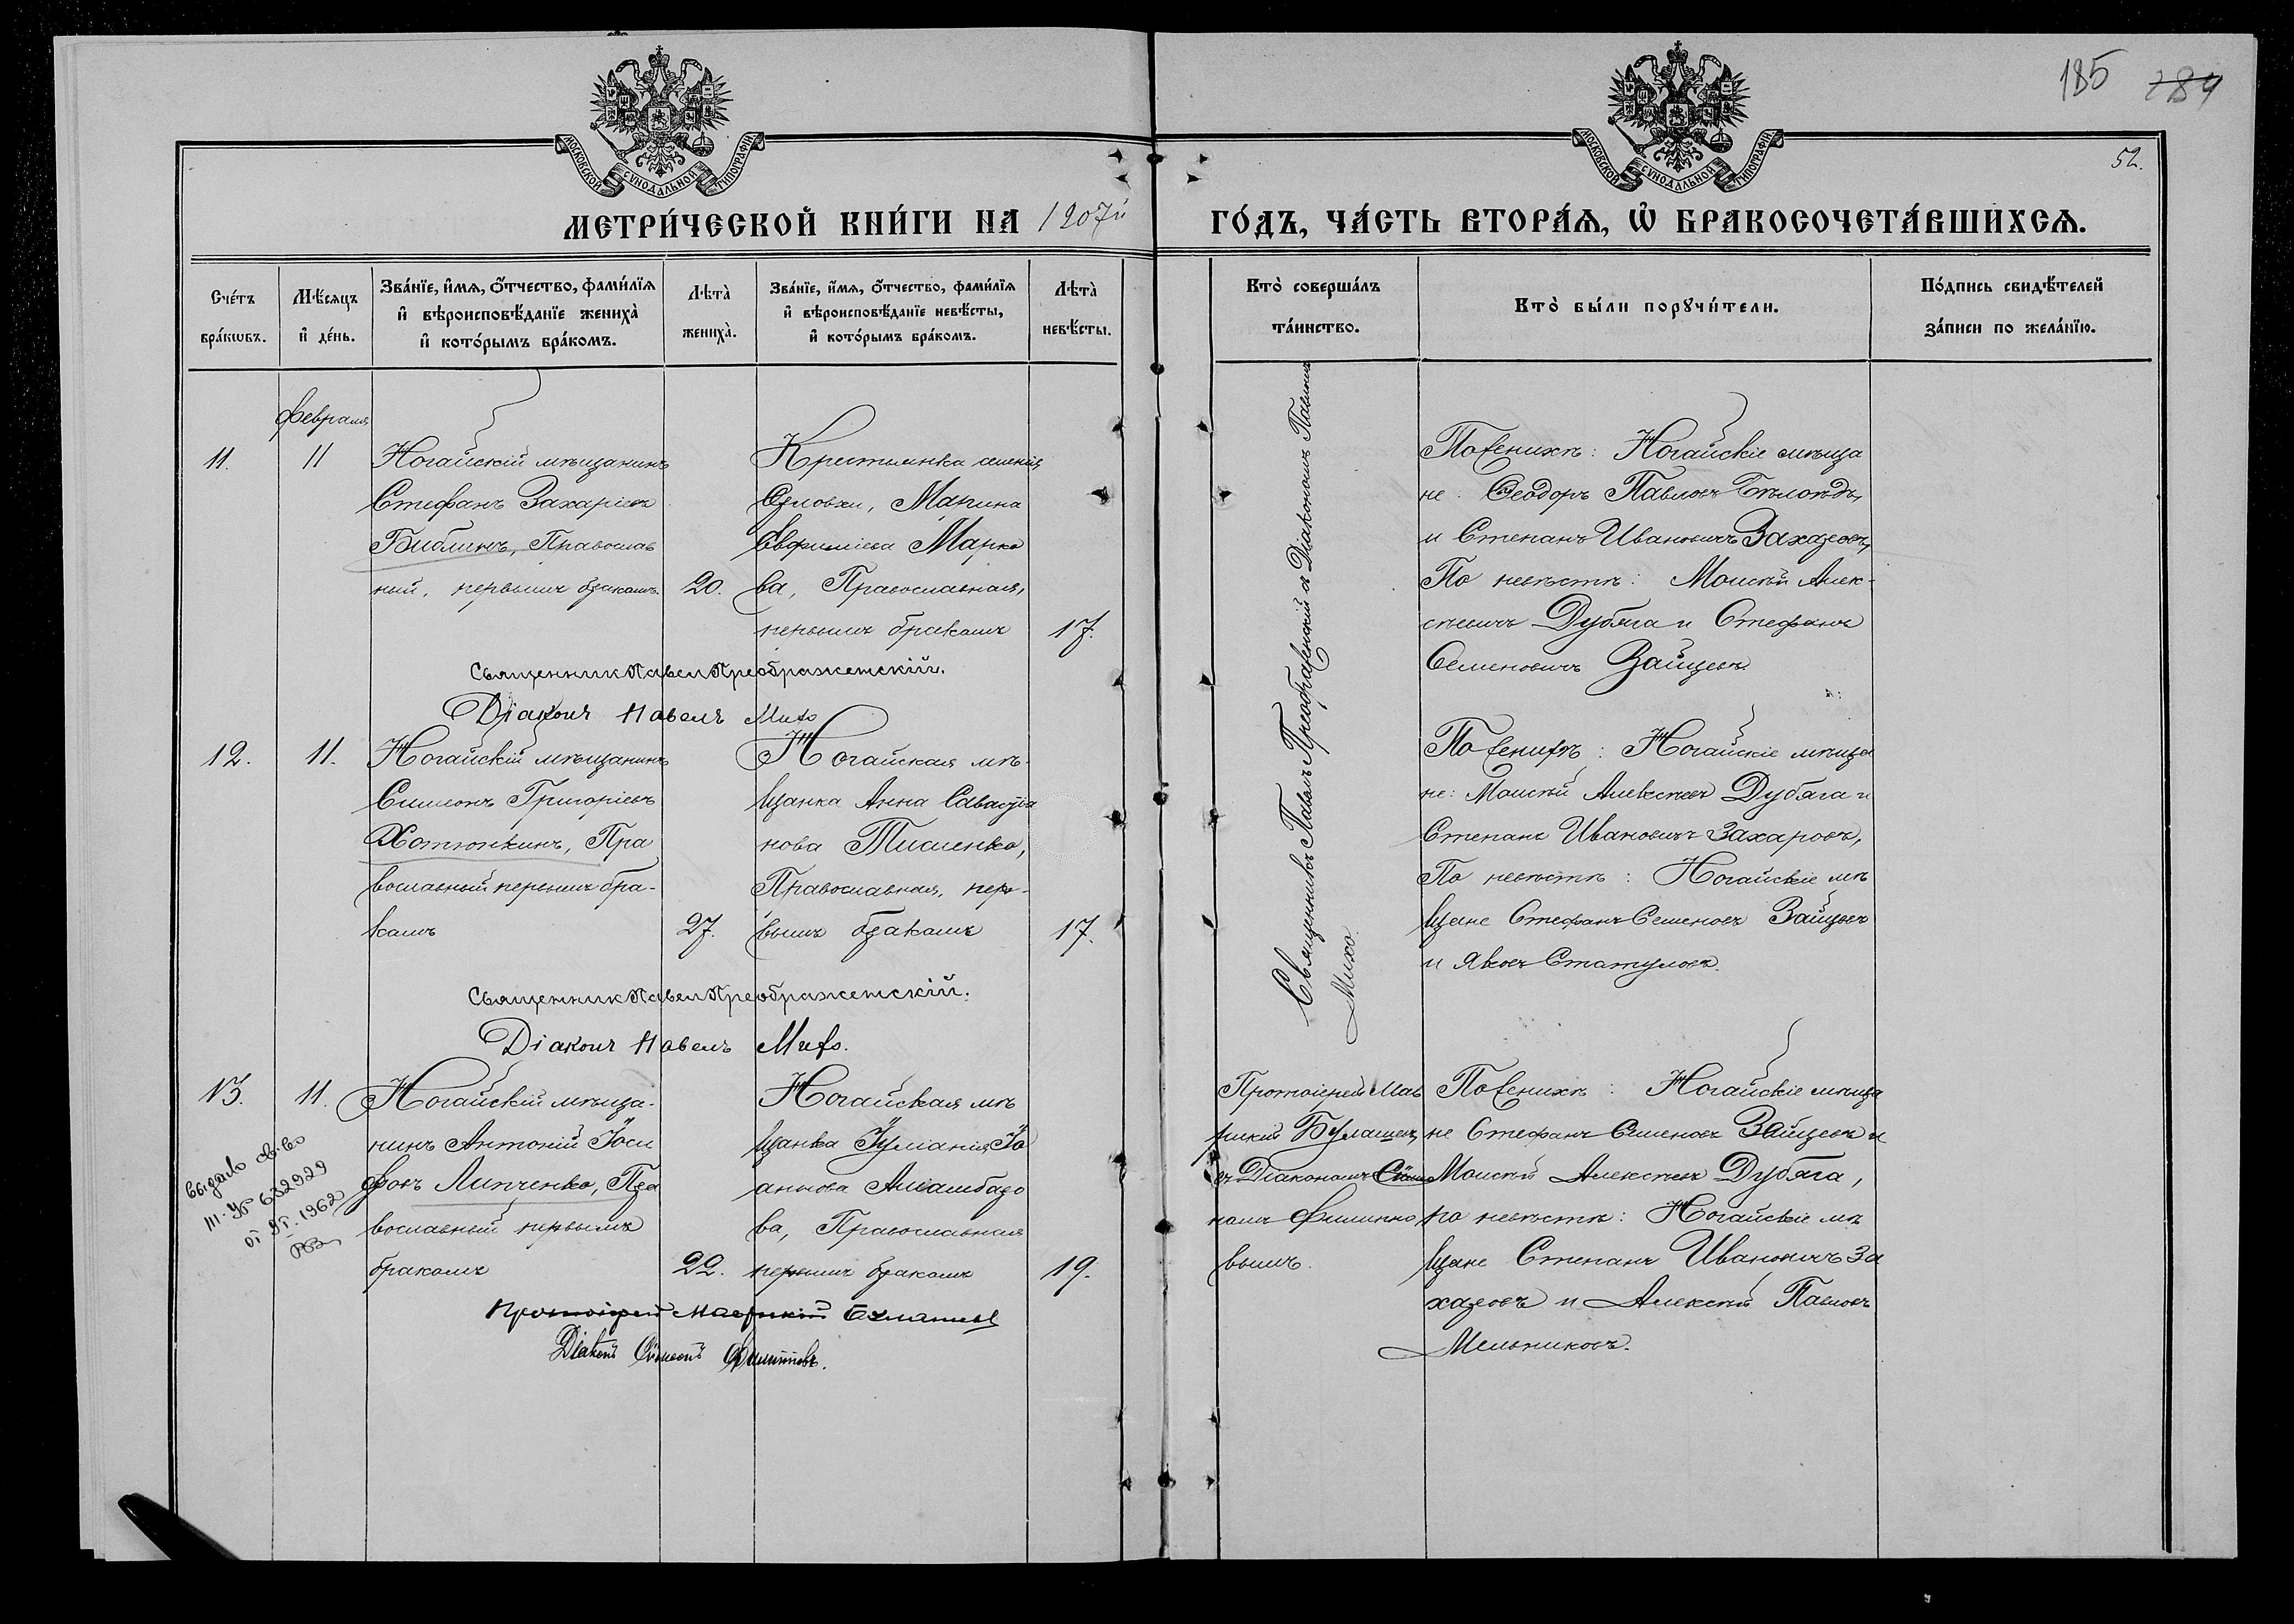 185 289
52.
МОСКОВСКОЙ СѴНОДАЛЬНОЙ ТИПОГРАФІИ
МОСКОВСКОЙ СѴНОДАЛЬНОЙ ТИПОГРАФІИ
МЕТРИ́ЧЕСКОЙ КНИ́ГИ НА 1907й ГО́ДЪ, ЧА́СТЬ ВТОРА́Ѧ, Ѡ҆ БРАКОСОЧЕТА́ВШИХСѦ.
Сче́тъ
бра́кѡвъ.
Мѣ́сяцъ
и҆ де́нь.
Зва́нїе, и҆́мѧ, ѻ҆́тчество, фами́лїѧ
и҆ вѣроисповѣ́данїе жениха̀
и҆ кото́рымъ бра́комъ.
Лѣта̀
жениха̀.
Зва́нїе, и҆́мѧ, ѻ҆́тчество, фами́лїѧ
и҆ вѣроисповѣ́данїе невѣ́сты,
и҆ кото́рымъ бра́комъ.
Лѣта̀
невѣ́сты.
Кто̀ соверша́лъ
та́инство.
Кто̀ бы́ли порꙋчи́тели.
По́дпись свидѣ́телей
за́писи по жела́нїю.
Февраля
11.
11
Ногайскій мѣщанинъ
Стефанъ Захаріевъ
Библинъ, Православ
ный, первымъ бракомъ.
20.
Крестьянка селенія
Орловки, Марина
Евфиміева Марко
ва, Православная,
первымъ бракомъ
17.
Священникъ Павелъ Преображенскій съ Діакономъ Павломъ
Михо
По женихѣ: Ногайскіе мѣща
не: Ѳеодоръ Павловъ Бѣлоѣдъ,
и Степанъ Ивановичъ Захаровъ,
По невѣстѣ: Моисей Алек-
сѣевичъ Дубяга и Стефанъ
Семеновичъ Зайцевъ.
Священник Павел Преображенскій.
Діаконъ Павелъ Михо
12.
11.
Ногайскій мѣщанинъ
Симеонъ Григоріевъ
Хотюнкинъ, Пра
вославный первымъ бра-
комъ
27.
Ногайская мѣ-
щанка Анна
нова Тисленко,
Православная, пер-
вымъ бракомъ
17.
По женихѣ: Ногайскіе мѣща
не: Моисей Алексѣевъ Дубяга и
Степанъ Ивановичъ Захаровъ,
По невѣстѣ: Ногайскіе мѣ
щане Стефанъ Семеновъ Зайцевъ
и Яковъ Статуловъ.
Священник Павел Преображенскій.
Діаконъ Павелъ Михо.
13.
11.
Ногайскій мѣща-
нинъ Антоній Іоси
фовъ Липченко, Пра
вославный первымъ
бракомъ
22.
Ногайская мѣ
щанка Іуліанія Іо
аннова
ва, Православная
первымъ бракомъ
19.
Протоіерей Мав
рикій
съ Діакономъ Симео
номъ Филиппо
вымъ.
По женихѣ: Ногайскіе мѣща
не Стефанъ Семеновъ Зайцевъ и
Моисей Алексѣевъ Дубяга,
по невѣстѣ: Ногайскіе мѣ
щане Степанъ Ивановичъ За
харовъ и Алексѣй Павловъ
Мельниковъ.
Выдано св-во
III-УБ 632929
от 9/I-1962
Протоіерей Маврикій
Діаконъ Симеонъ Филипповъ.